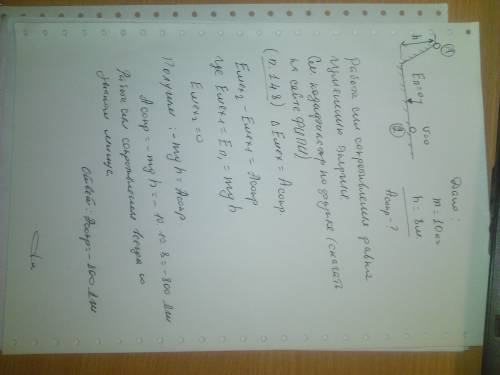 Дано:
m = 10 кг
h = 8 м
Aсопр = ?
①
h
Eп = 0
V = 0
②
Работа сил сопротивления равна
изменению энергии
См кодификатор по физике (скачать
(п. 1.4.8) на сайте ФИПИ)
ΔEмех = Aсопр
Eмех2 - Eмех1 = Aсопр
где Eмех1 = Eп1 = mgh
Eмех2 = 0
Получим: -mgh = Aсопр
Aсопр = -mgh = -10·10·8 = -800 Дж
Работа сил сопротивления всегда со
знаком минус.
Ответ: Aсопр = -800 Дж